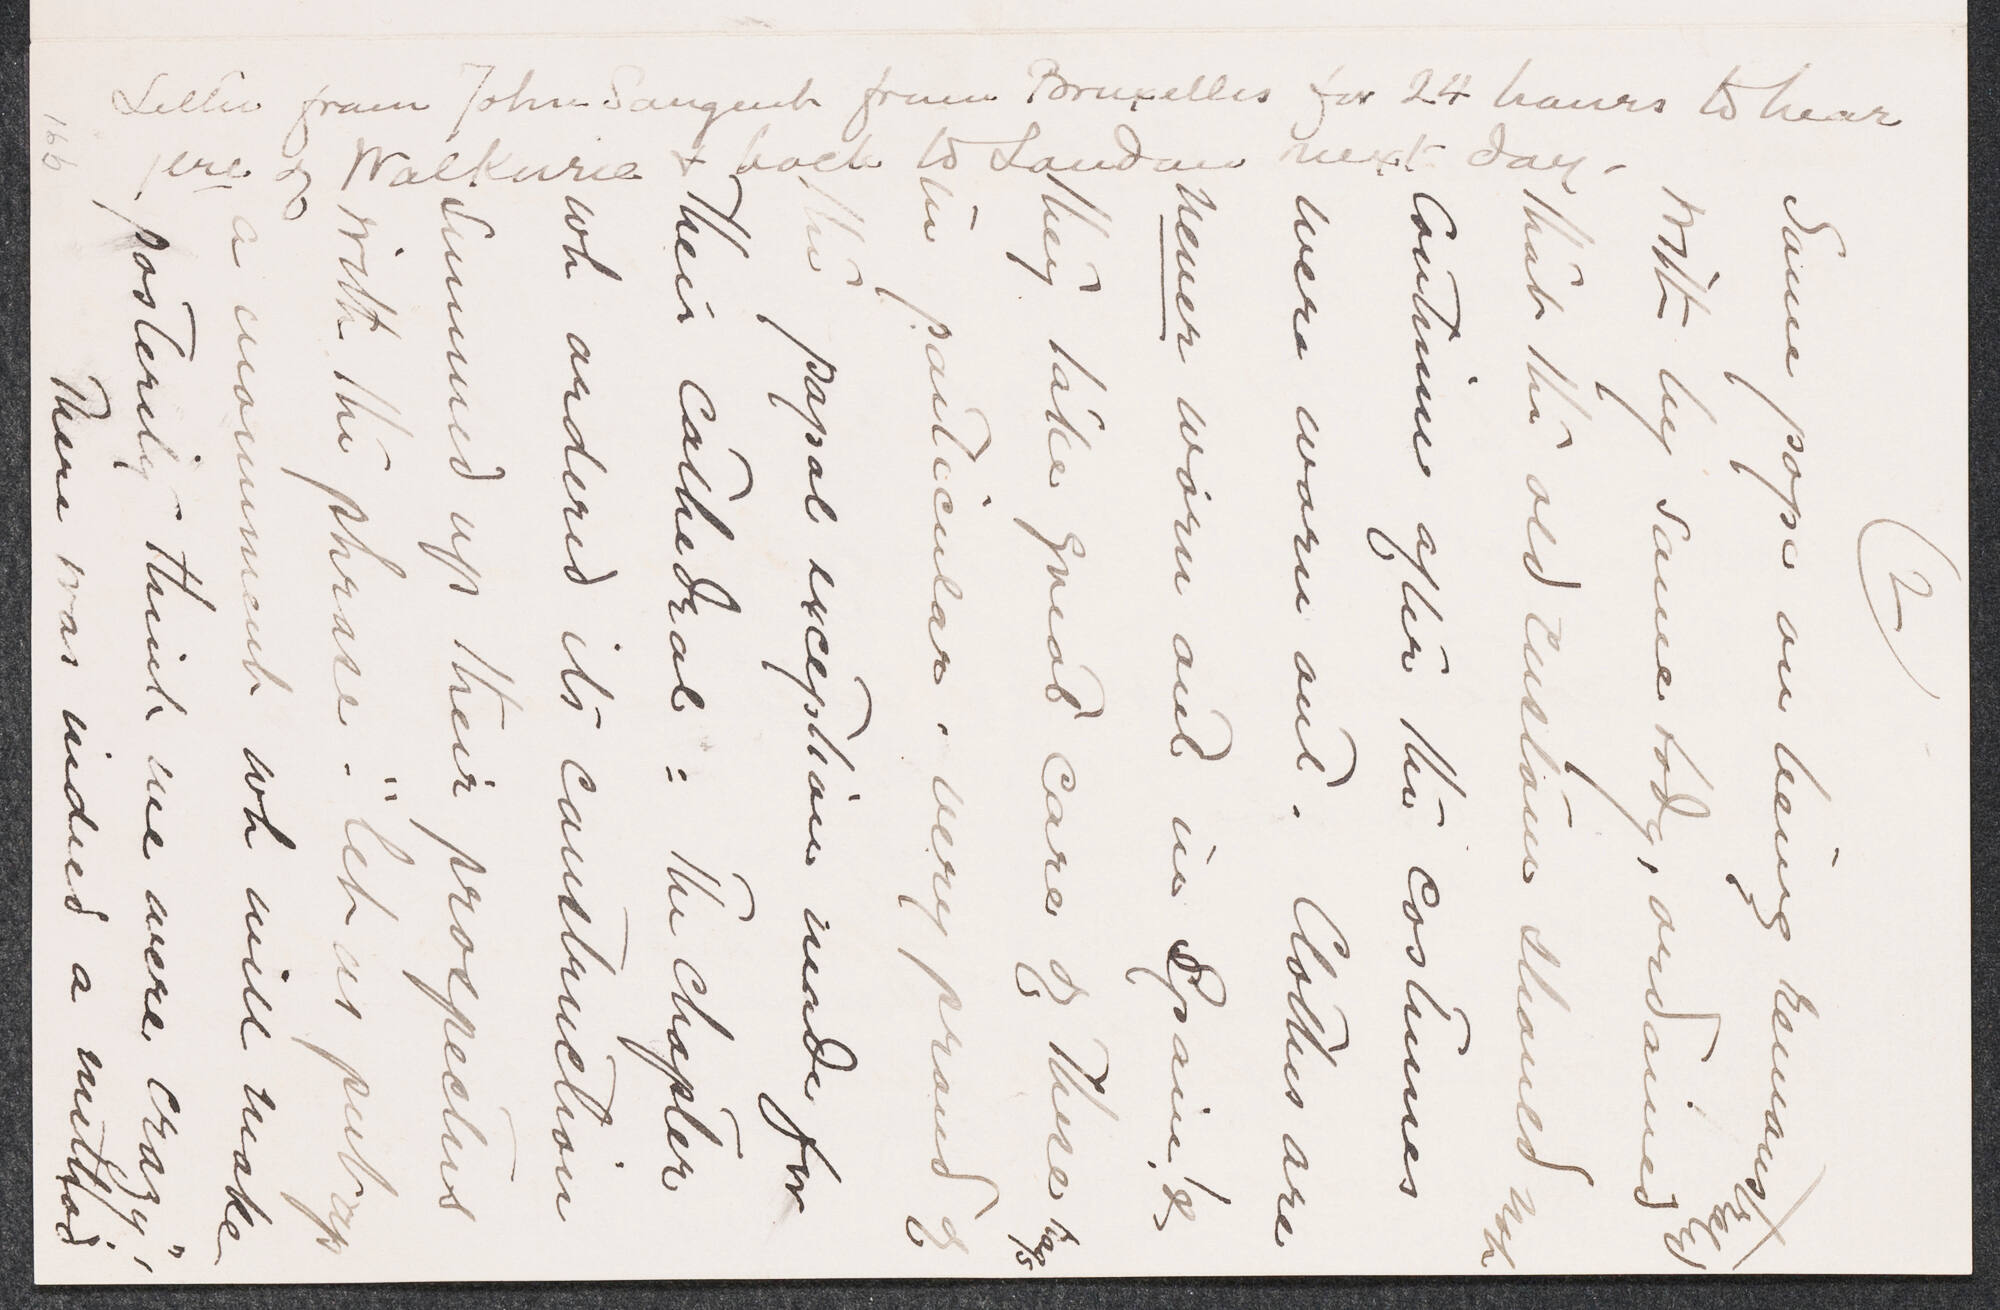 Letter from John Sargent from Bruxelles for 24 hours to hear
pere of Walkurie & back to London next day.
166
(2)
Some pope on being remonstrated
with by some body, ordained
that the old custom should not
continue after the costumes
were worn out. Clothes are
never worn out in Spain! &
they take good care of these togs
in particular. very proud of
the papal exception made for
their cathedral = The chapter
wh ordered its construction
summed up their prospectus
with the phrase. "let us put up
a monument wh will make
posterity think we were crazy";
There was indeed a method